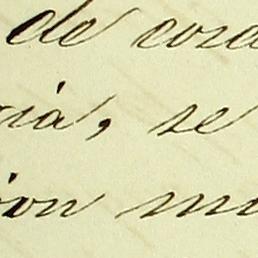 de cora
cia, se
ion mi